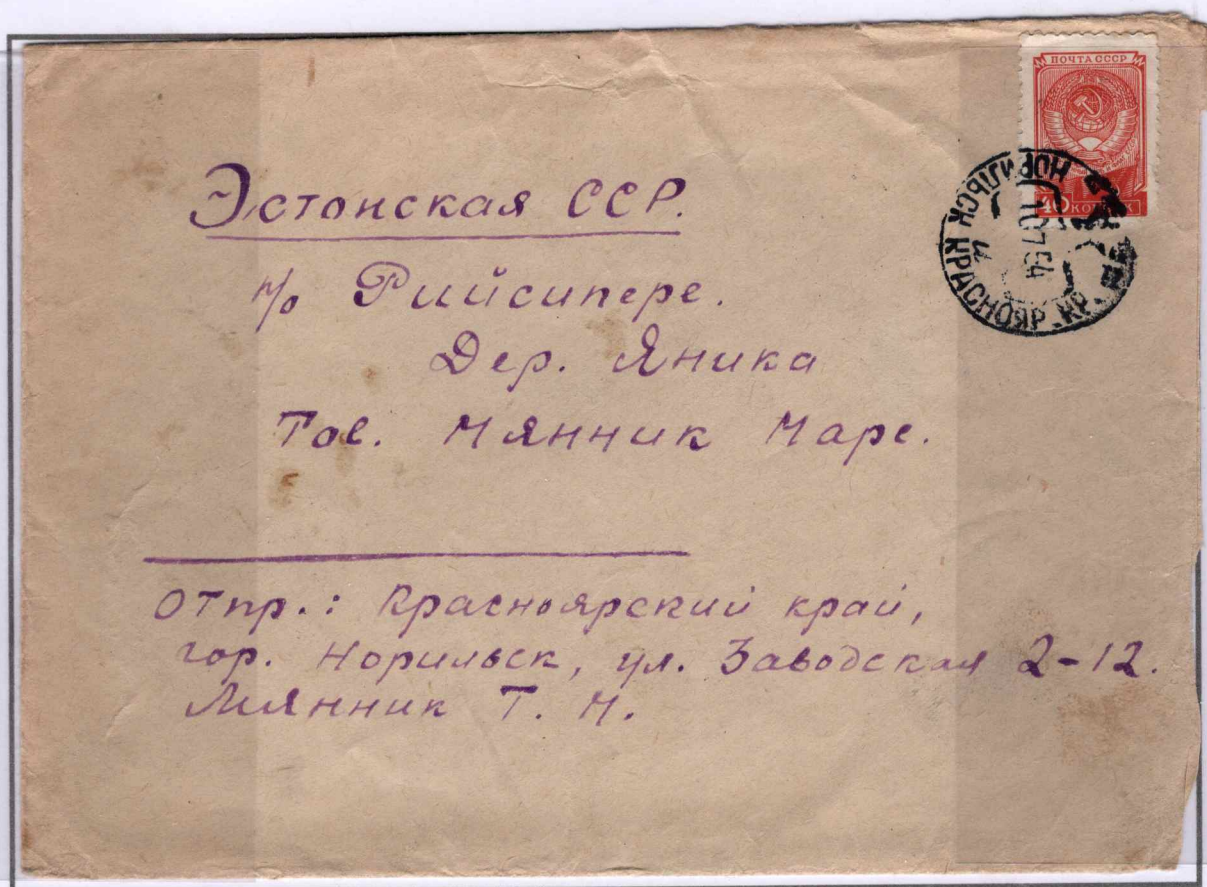 ПОЧТА СССР
40 КОПЕЕК
НОРИЛЬСК КРАСНОЯР. КР.
10 7 54
Эстонская ССР.
п/о Рийсипере.
Дер. Яника
Тов. Мянник Маре.
Отпр.: Красноярский край,
гор. Норильск, ул. Заводская 2-12.
Мянник Т. М.